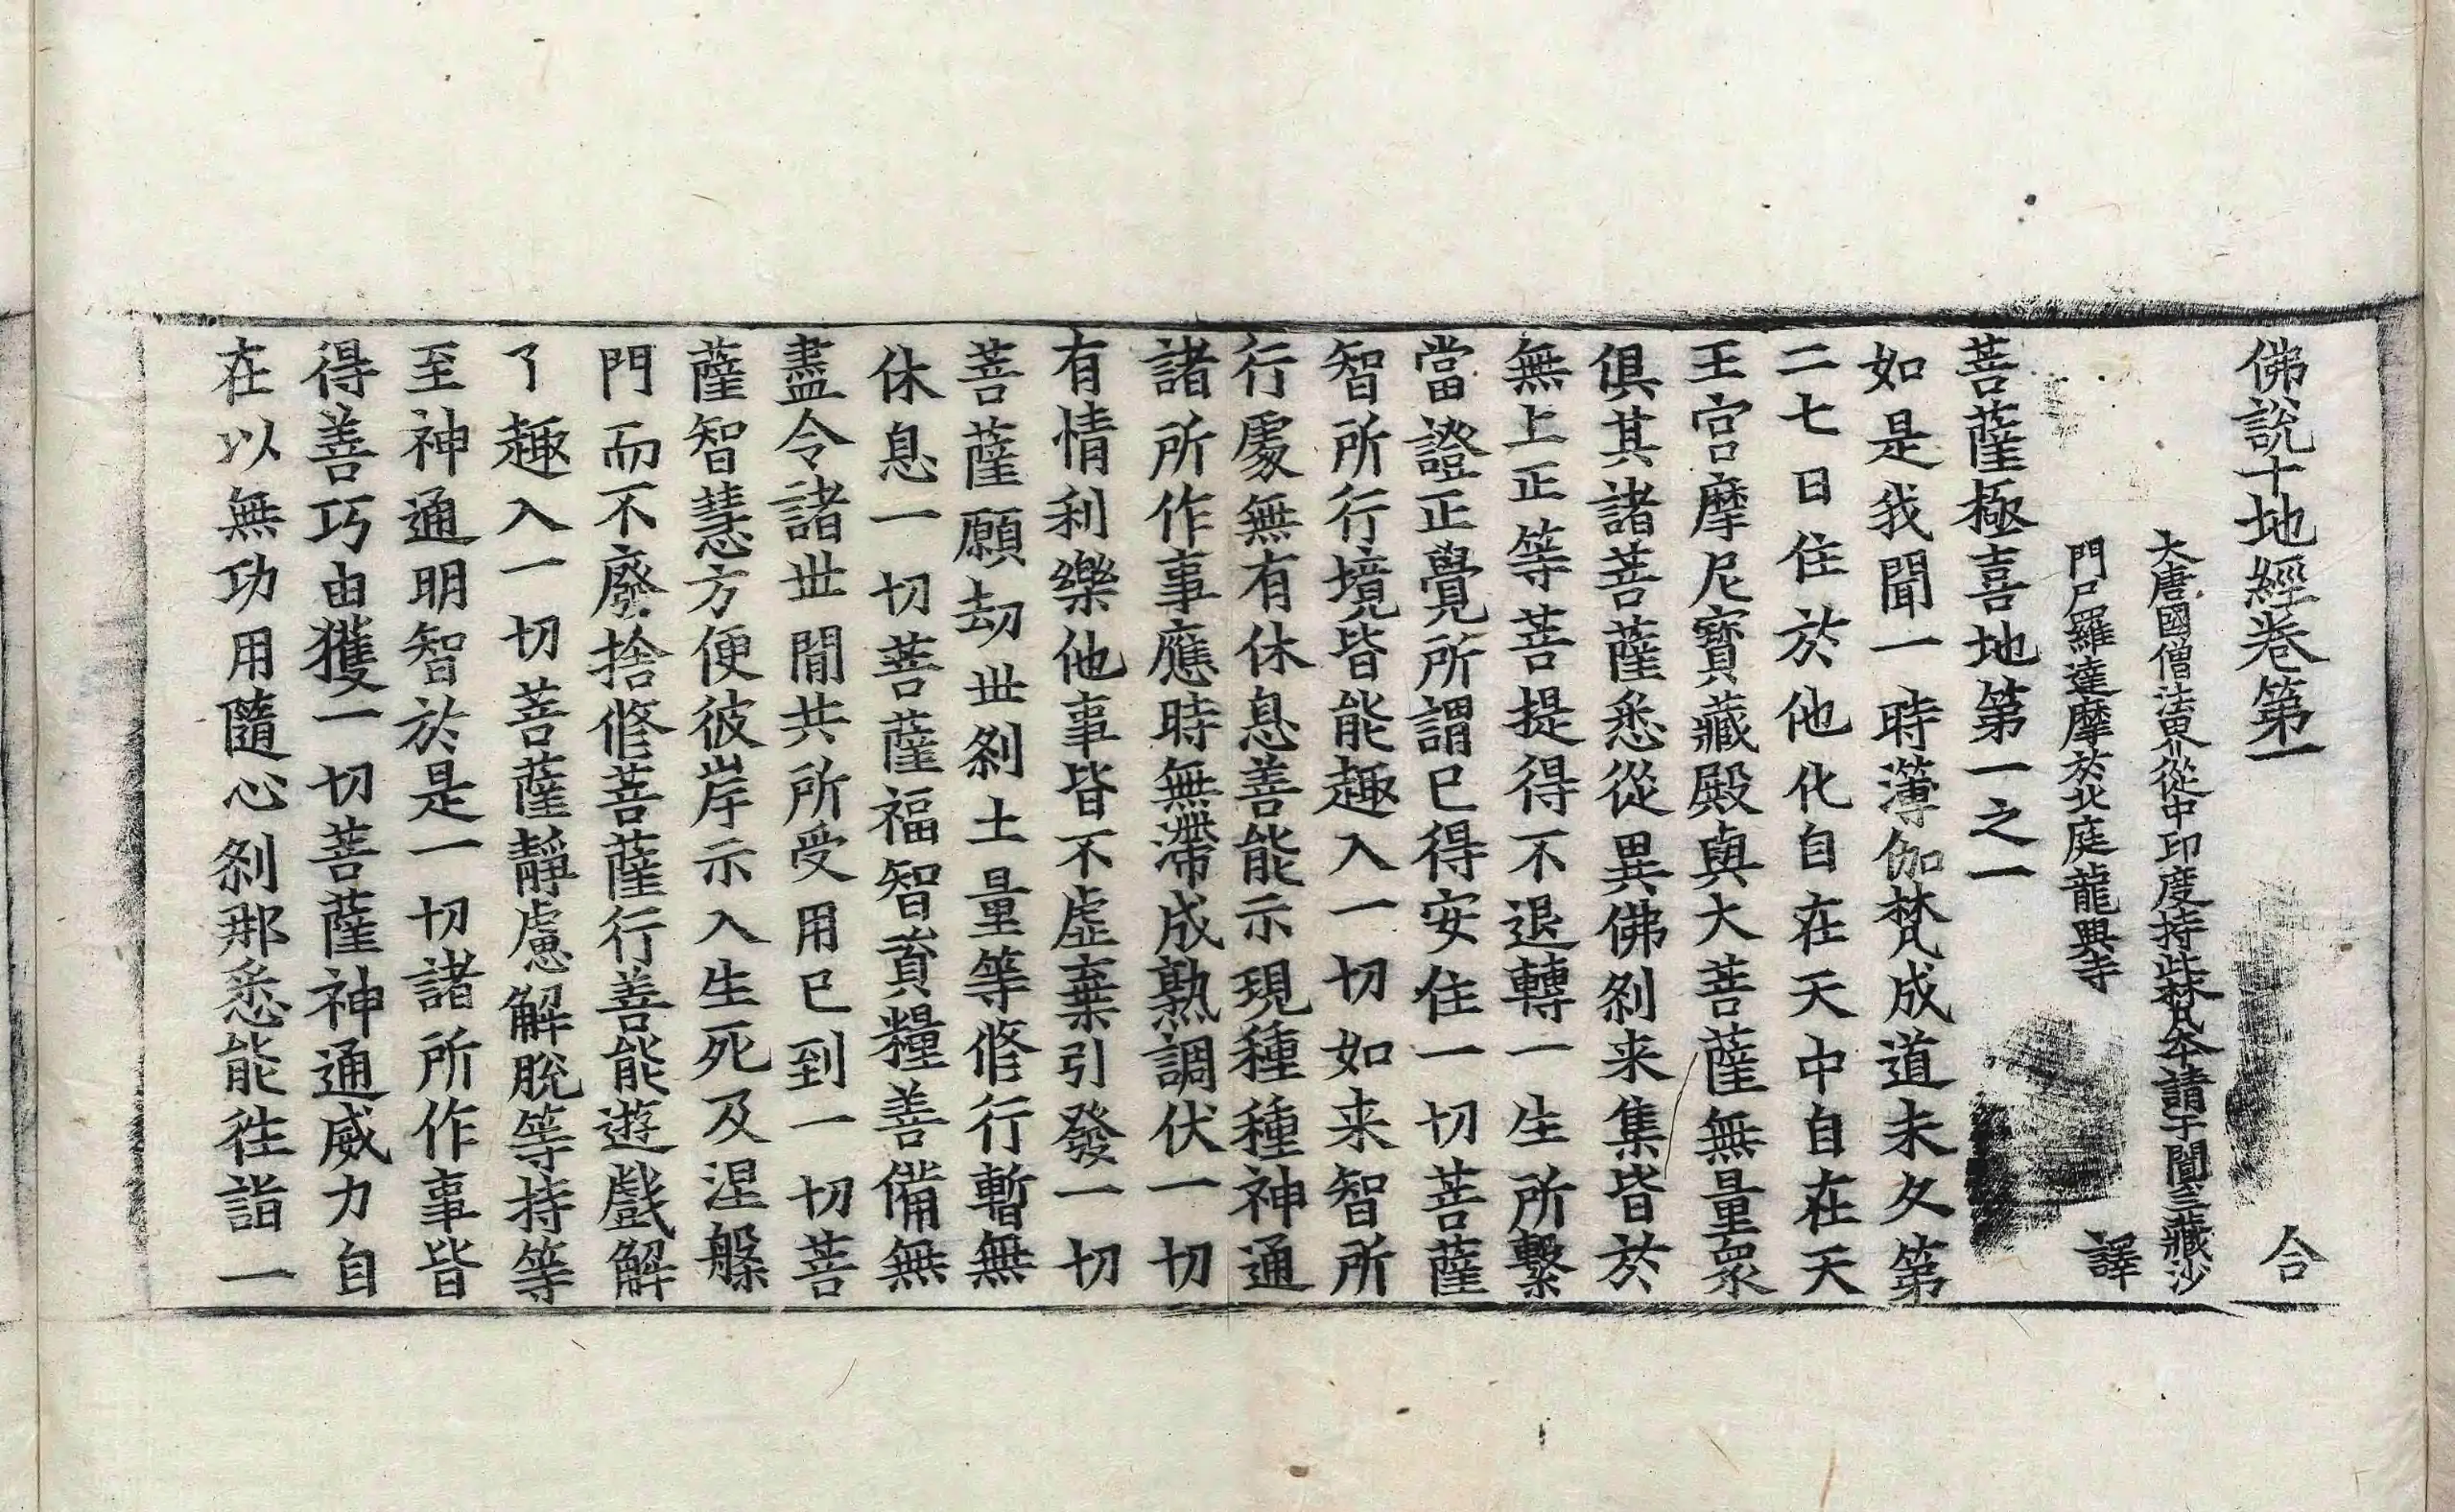 佛說十地經卷第一 合
大唐國僧法界從中印度持此梵本請于闐三藏沙
門尸羅達摩於北庭龍興寺 譯
菩薩極喜地第一之一
如是我聞一時薄伽梵成道未久第
二七日住於他化自在天中自在天
王宮摩尼寶藏殿與大菩薩無量眾
俱其諸菩薩悉從異佛剎来集皆於
無上正等菩提得不退轉一生所繫
當證正覺所謂已得安住一切菩薩
智所行境皆能趣入一切如来智所
行處無有休息善能示現種種神通
諸所作事應時無滯成熟調伏一切
有情利樂他事皆不虛棄引發一切
菩薩願劫世剎土量等修行暫無
休息一切菩薩福智資糧善備無
盡令諸世間共所受用已到一切菩
薩智慧方便彼岸示入生死及涅槃
門而不廢捨修菩薩行善能遊戲解
了趣入一切菩薩靜慮解脫等持等
至神通明智於是一切諸所作事皆
得善巧由獲一切菩薩神通威力自
在以無功用隨心剎那悉能往詣一